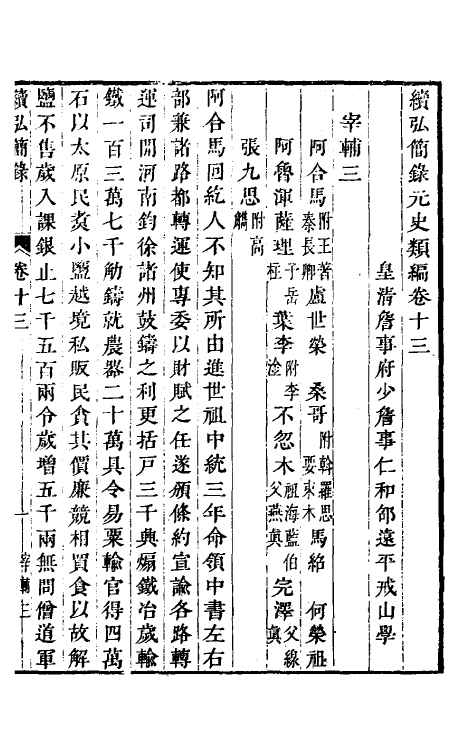 續弘簡錄元史類編卷十三
皇清詹事府少詹事仁和邵遠平戒山學
宰輔三
阿合馬附王著秦長卿 盧世榮 桑哥附斡羅思要束木 馬紹 何榮祖
阿魯渾薩理子岳柱 葉李附李淦 不忽木祖海藍伯父燕真 完澤父線真
張九思附高觿
阿合馬回紇人不知其所由進世祖中統三年命領中書左右
部兼諸路都轉運使專委以財賦之任遂頒條約宣諭各路轉
運司開河南鈞徐諸州鼓鑄之利更括戶三千興煽鐵冶歲輸
鐵一百三萬七千觔鑄就農器二十萬具令易粟輸官得四萬
石以太原民煑小鹽越境私販民貪其價廉競相買食以故解
鹽不售歲入課銀止七千五百兩令歲增五千兩無問僧道軍
續弘簡錄 卷十三 一 宰輔三